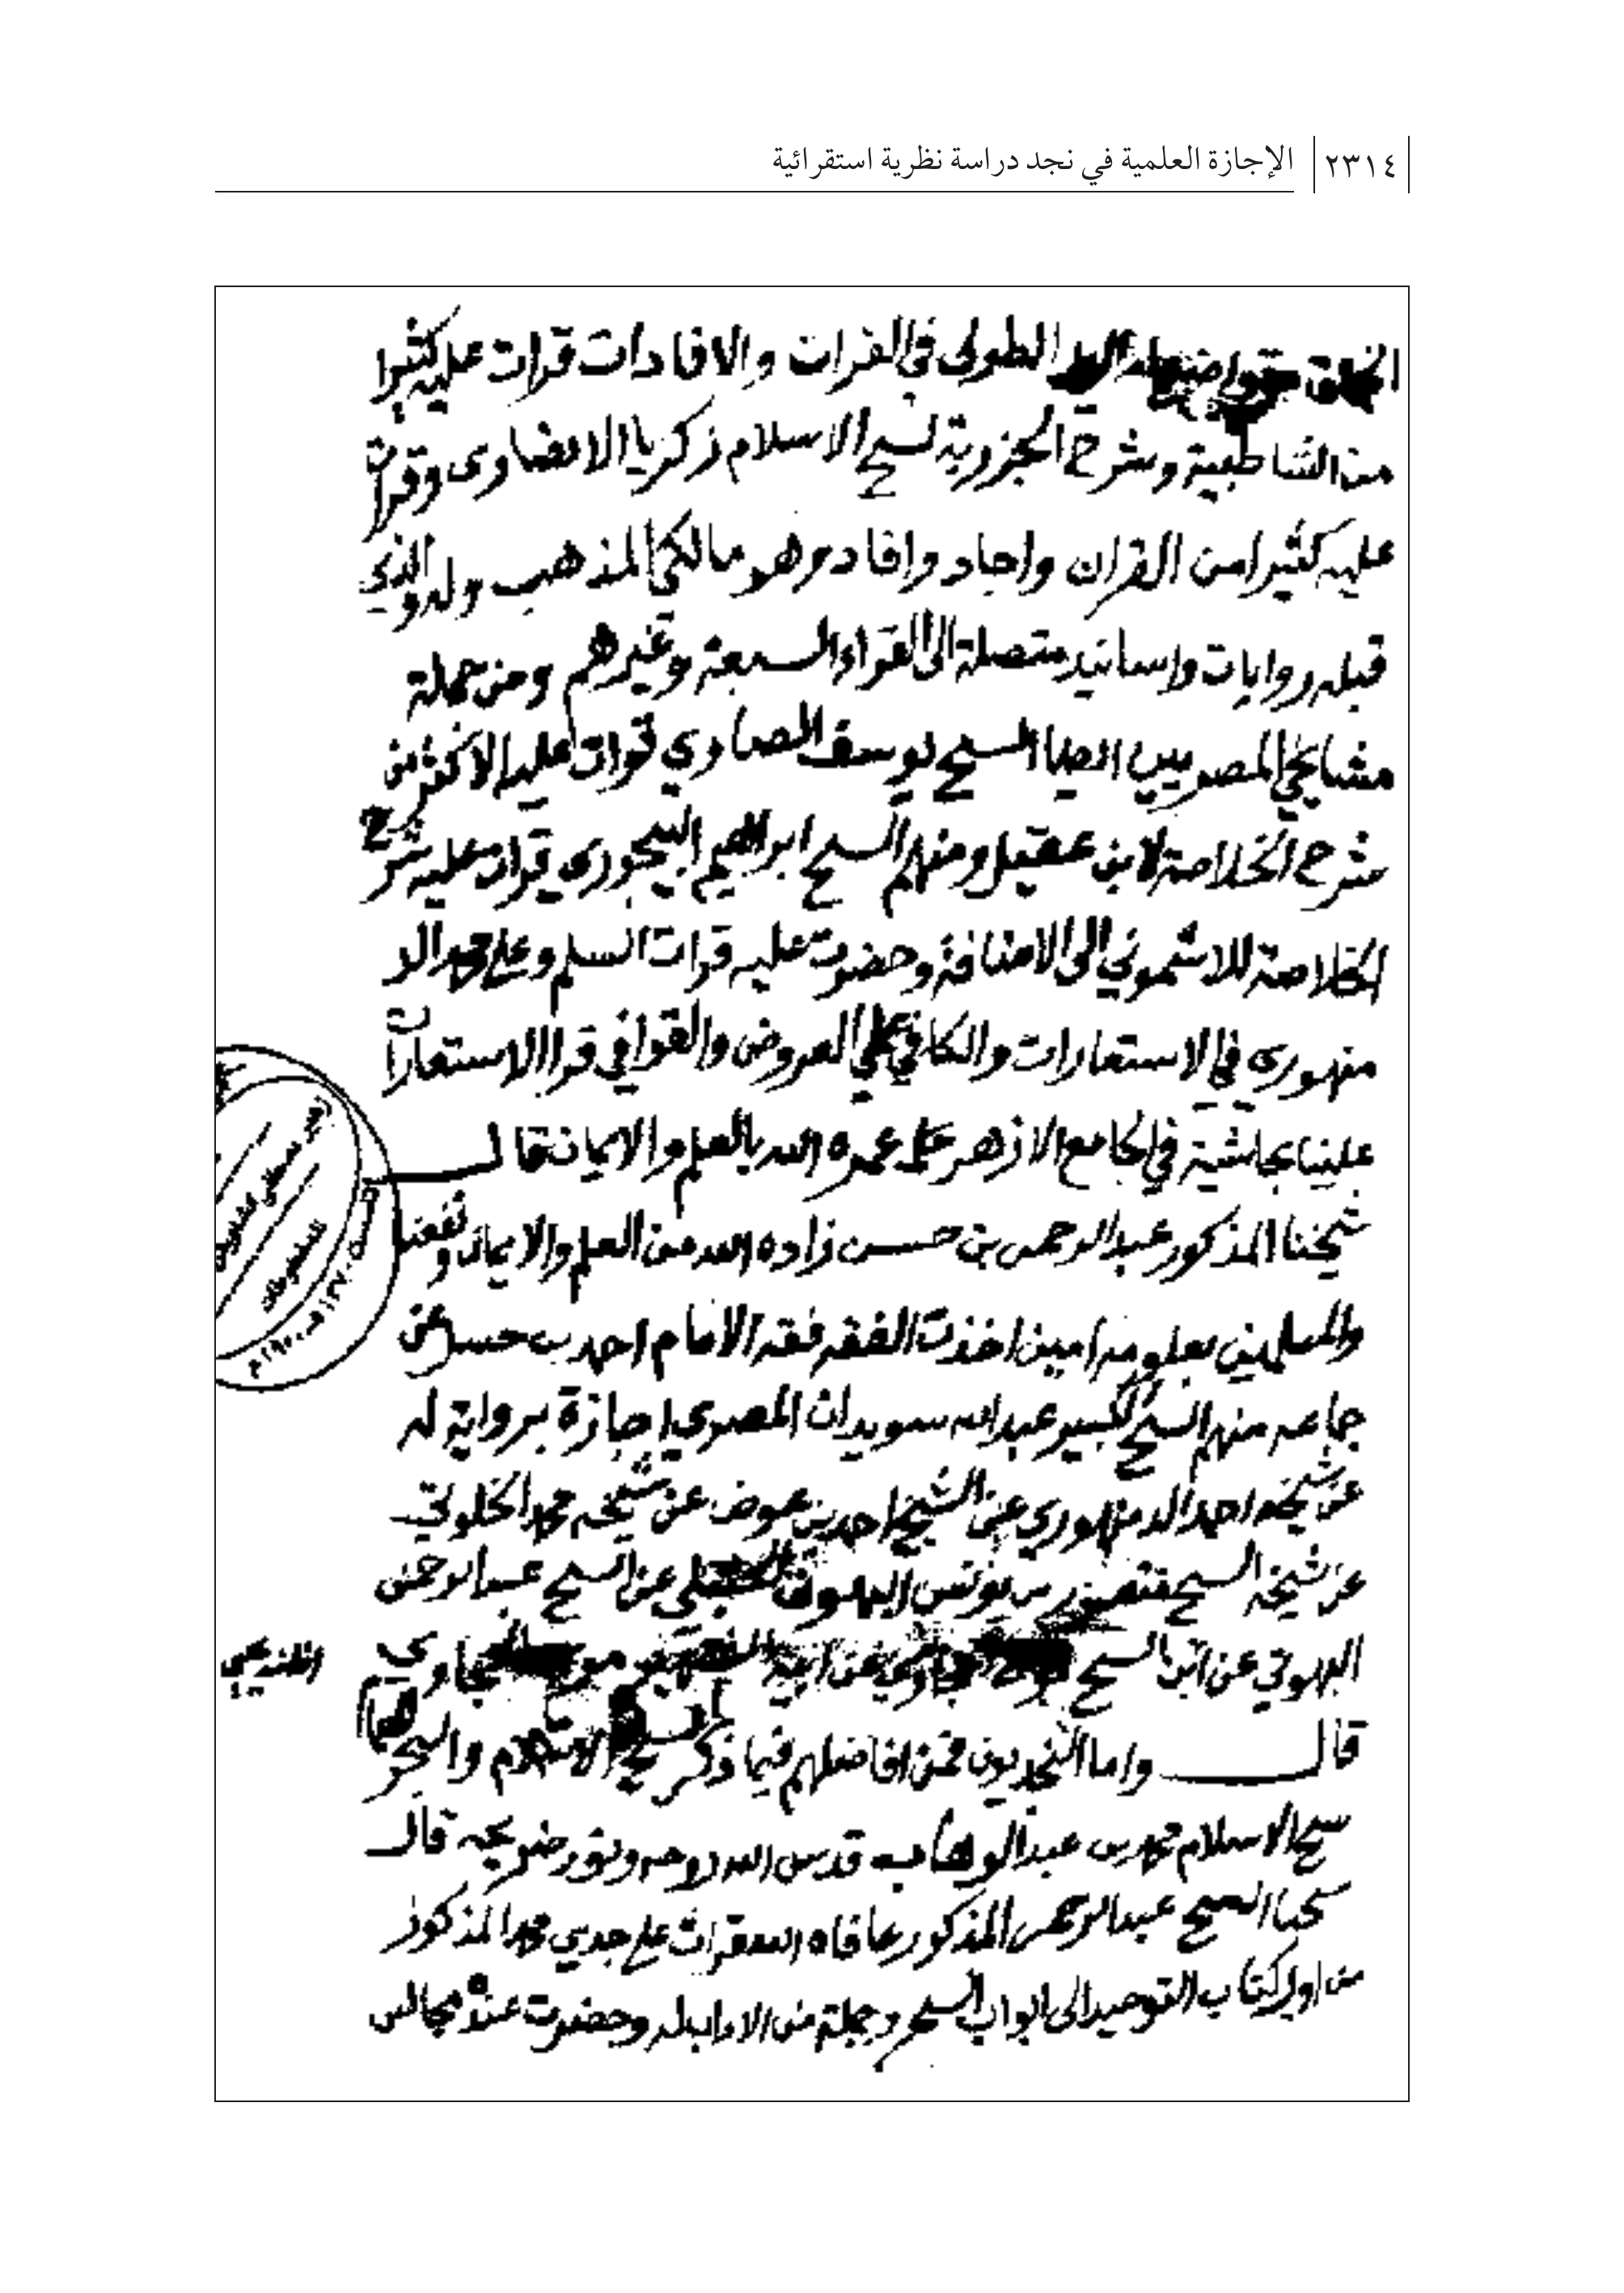 ٢٣١٤ الإجازة العلمية في نجد دراسة نظرية استقرائية
الطولى في القرات والافادات قرات عليه كثيرا
من الشاطبية وشرح الجزرية لشيخ الاسلام زكريا الانصاوى وقرات
عليه كثيرا من القران واجاد وافاد وهو مالكي المذهب وله
قبله روايات واسانيد متصلة الى القراء السبعة وغيرهم ومن جملة
مشايخي المصريين ايضا الشيخ يوسف الصاوي قرات عليه الاكثر من
شرح الخلاصة لابن عقيل ومنهم الشيخ ابراهيم البيجوري قرات عليه شرح
الخلاصة للاشموني الى الاضافة وحضرت عليه قرات السلم وعلى محمد الد
منهوري في الاستعارات والكافي في العروض والقوافي قرا الاستعارات
علينا بحاشية في الجامع الازهر عمره الله بالعلم والايمان قال
شيخنا المذكور عبدالرحمن بن حسن زاده الله من العلم والايمان ونفعنا
والمسلمين بعلومه امين اخذت الفقه فقه الامام احمد بن حنبل عن
جماعه منهم الشيخ الكبير عبدالله سويدان المصري اجازة بروايته له
عن شيخه احمد الدمنهوري عن الشيخ احمد بن عوض عن شيخه محمد الخلوتي
عن شيخه الشيخ منصور بن يونس البهوتي الحنبلي عن الشيخ عبدالرحمن
البهوتي عن ابن الشيخ
قال واما النجديون فمن افاضلهم فيما ذكر
شيخ الاسلام محمد بن عبدالوهاب قدس الله روحه ونور ضريحه قال
شيخنا الشيخ عبدالرحمن المذكور عافاه الله قرات على جدي محمد المذكور
من اول كتاب التوحيد الى ابواب السحر وجملة من الاداب له وحضرت عنده مجالس